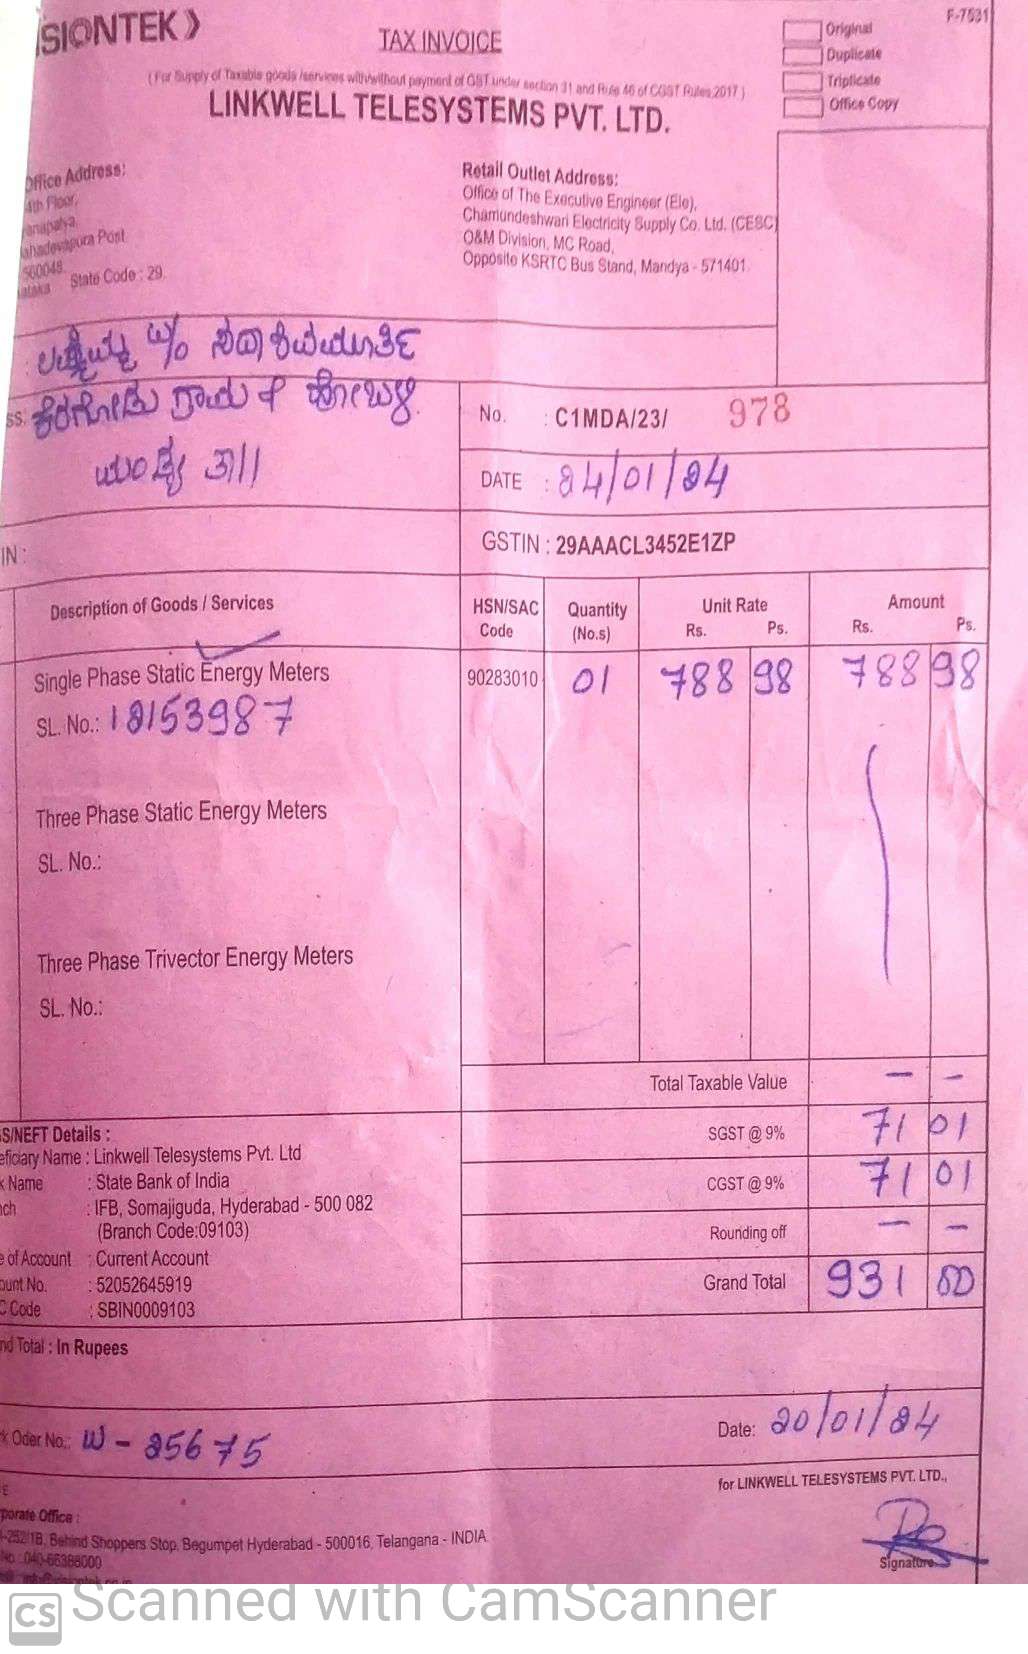 SIONTEK
TAX INVOICE
F-7531
Original
Duplicate
Triplicate
Office Copy
(For Supply of Taxable goods /services with/without payment of GST under section 31 and Rule 46 of CGST Rules,2017)
LINKWELL TELESYSTEMS PVT. LTD.
Office Address:
4th Floor,
anapalya,
ahadevapura Post
560048.
State Code : 29.
Retail Outlet Address:
Office of The Executive Engineer (Ele),
Chamundeshwari Electricity Supply Co. Ltd. (CESC)
O&M Division, MC Road,
Opposite KSRTC Bus Stand, Mandya - 571401.
W/o ಸದಾಶಿವಮೂರ್ತಿ
ss. ಕೆರಗೋಡು ಗ್ರಾಮ & ಹೋಬಳಿ
ಮಂಡ್ಯ ತಾ||
No. : C1MDA/23/ 978
DATE : 24/01/24
IN :
GSTIN : 29AAACL3452E1ZP
Description of Goods / Services
HSN/SAC Code
Quantity (No.s)
Unit Rate
Rs. Ps.
Amount
Rs. Ps.
Single Phase Static Energy Meters 90283010 01 788 98 788 98
SL. No.: 12153987
Three Phase Static Energy Meters
SL. No.:
Three Phase Trivector Energy Meters
SL. No.:
Total Taxable Value — —
SGST @ 9% 71 01
CGST @ 9% 71 01
Rounding off — —
Grand Total 931 00
S/NEFT Details :
eficiary Name : Linkwell Telesystems Pvt. Ltd
k Name : State Bank of India
nch : IFB, Somajiguda, Hyderabad - 500 082
(Branch Code:09103)
e of Account : Current Account
ount No. : 52052645919
C Code : SBIN0009103
nd Total : In Rupees
k Oder No.: W - 25675
Date: 20/01/24
for LINKWELL TELESYSTEMS PVT. LTD.,
Signature
porate Office :
-252/1B, Behind Shoppers Stop, Begumpet Hyderabad - 500016, Telangana - INDIA
No : 040-66388000
CS Scanned with CamScanner